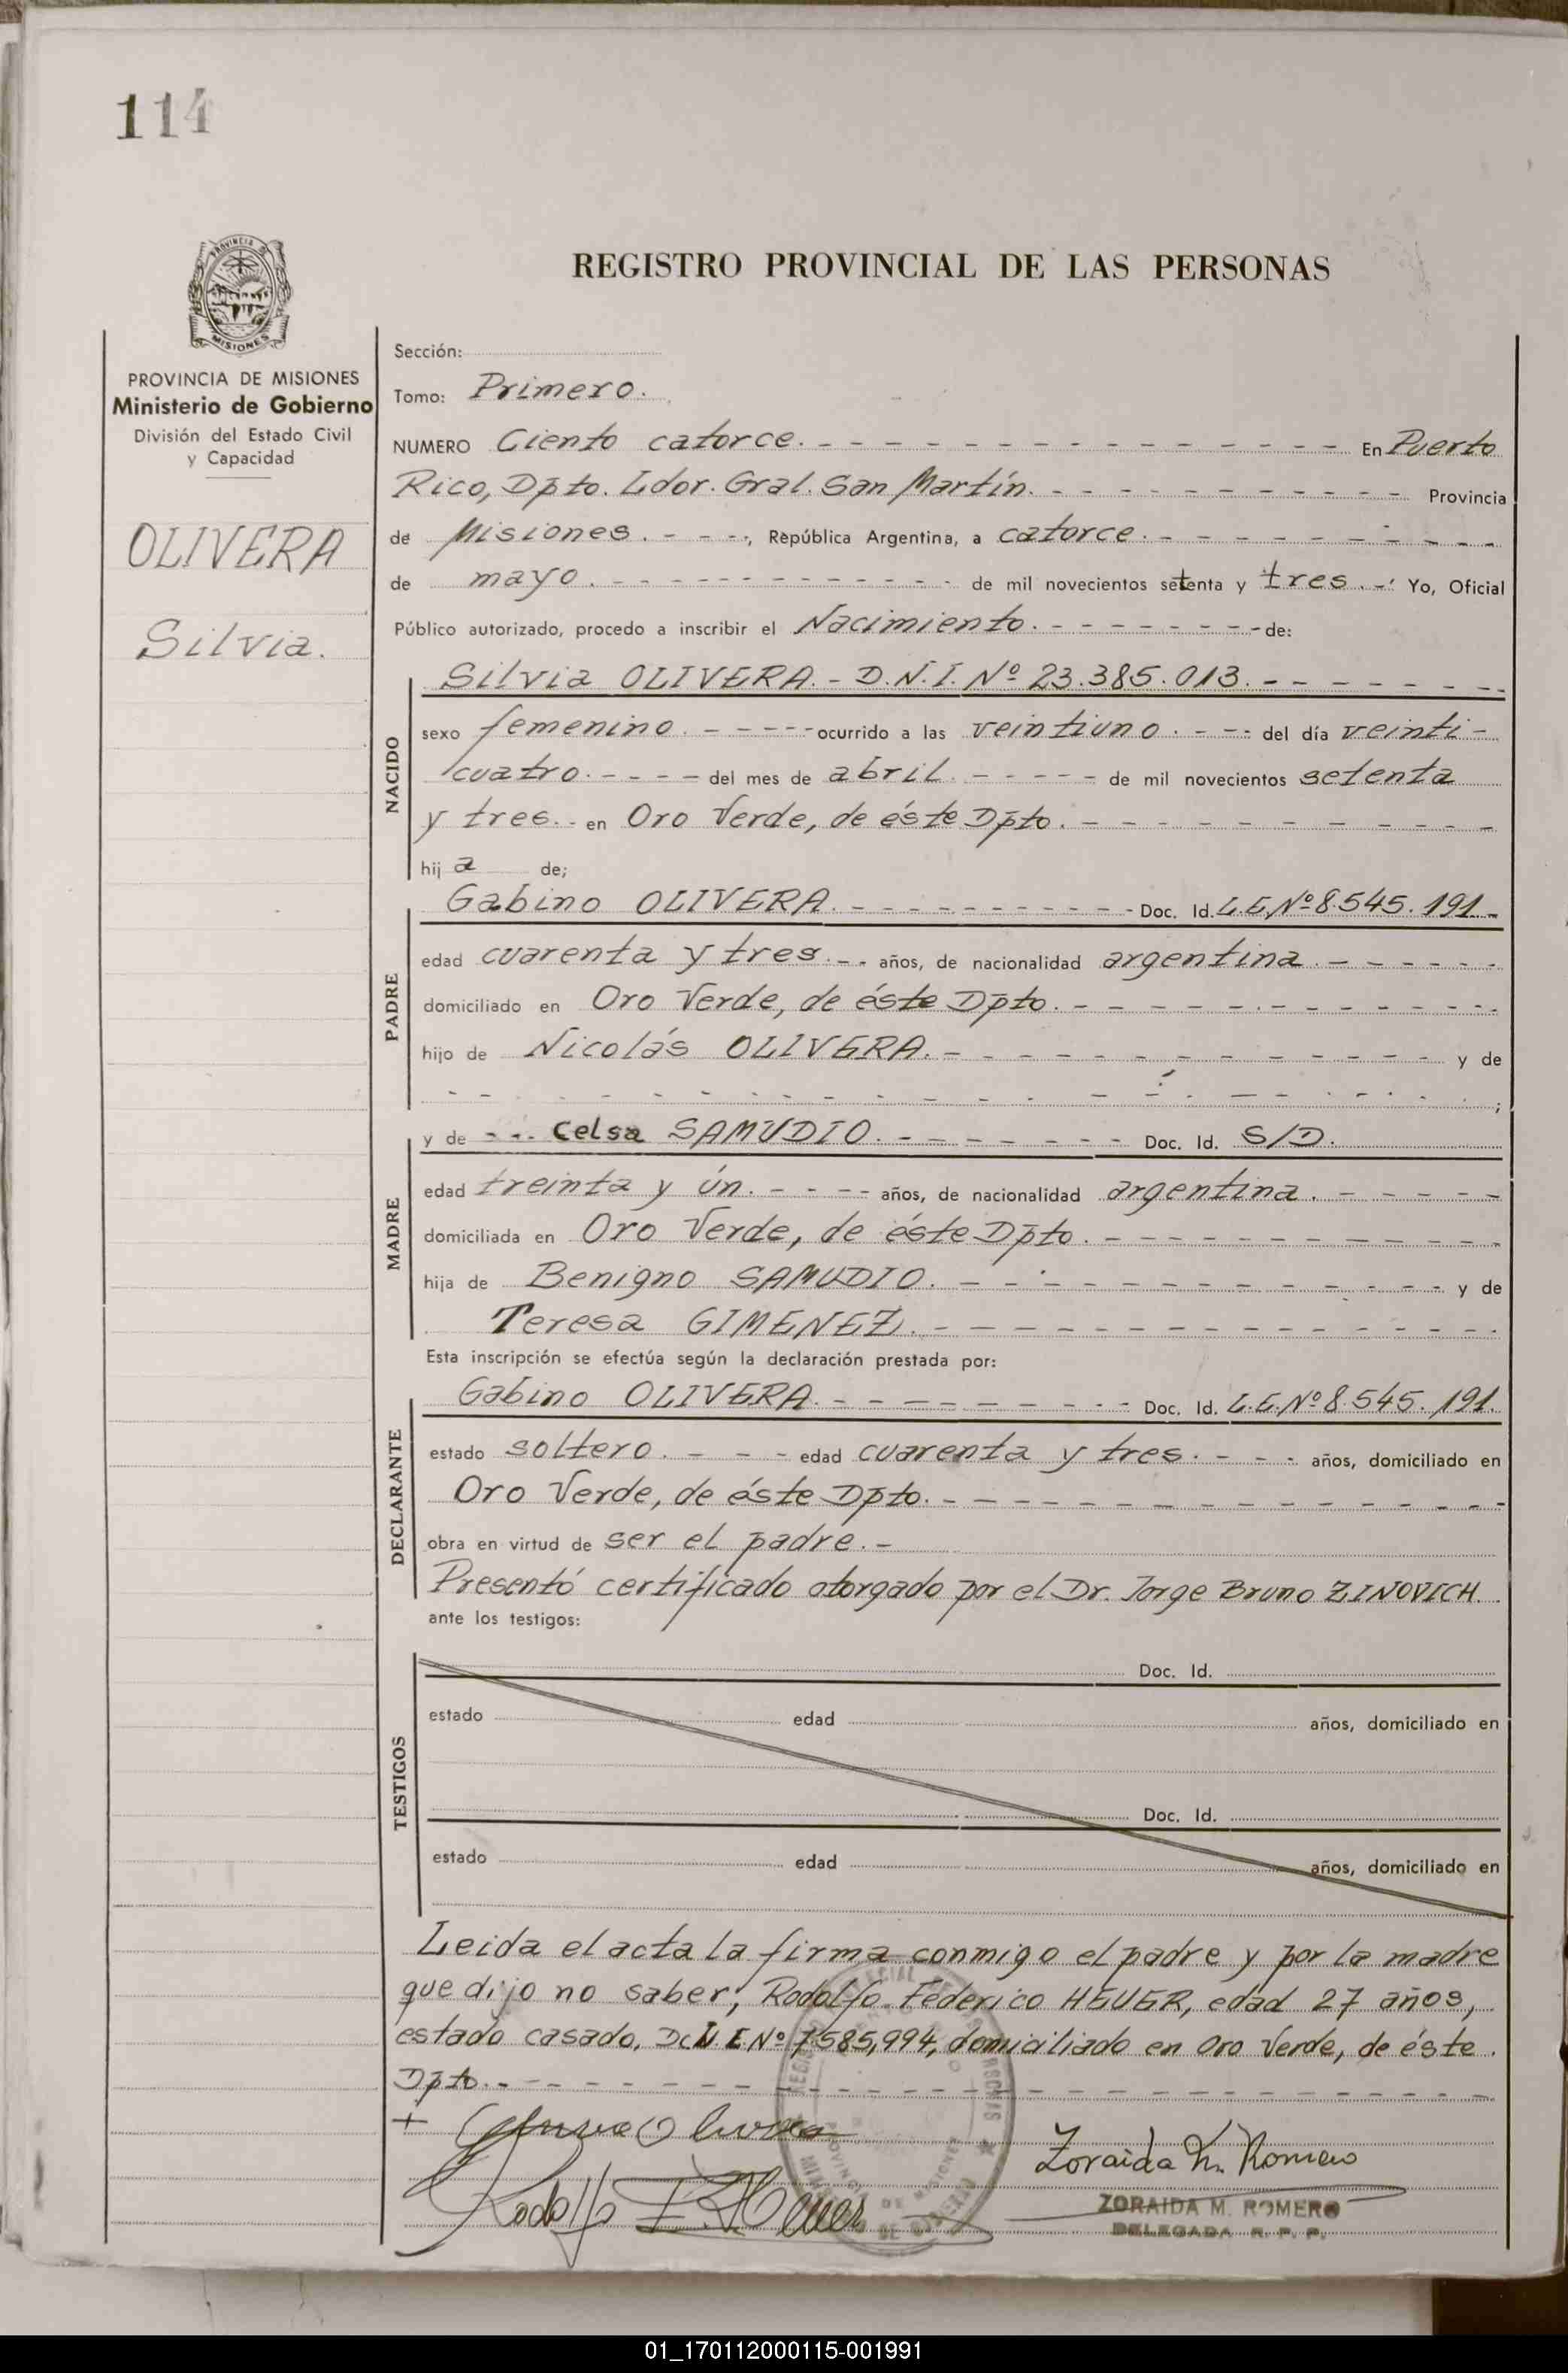 114
PROVINCIA DE
MISIONES
REGISTRO PROVINCIAL DE LAS PERSONAS
PROVINCIA DE MISIONES
Ministerio de Gobierno
División del Estado Civil
y Capacidad
OLIVERA
Silvia.
Sección:
Tomo: Primero.
NUMERO Ciento catorce. En Puerto
Rico, Dpto. Ldor. Gral. San Martín. Provincia
de Misiones. , República Argentina, a catorce.
de mayo. de mil novecientos setenta y tres. Yo, Oficial
Público autorizado, procedo a inscribir el Nacimiento. de:
NACIDO
Silvia OLIVERA. - D.N.I. Nº 23.385.013.
sexo femenino. ocurrido a las veintiuno. del día veinti-
cuatro. del mes de abril. de mil novecientos setenta
y tres. en Oro Verde, de éste Dpto.
hij a de;
PADRE
Gabino OLIVERA. Doc. Id. L.E. Nº 8.545.191
edad cuarenta y tres. años, de nacionalidad argentina.
domiciliado en Oro Verde, de éste Dpto.
hijo de Nicolás OLIVERA. y de
;
MADRE
y de Celsa SAMUDIO. Doc. Id. S/D.
edad treinta y ún. años, de nacionalidad argentina.
domiciliada en Oro Verde, de éste Dpto.
hija de Benigno SAMUDIO. y de
Teresa GIMENEZ.
Esta inscripción se efectúa según la declaración prestada por:
DECLARANTE
Gabino OLIVERA. Doc. Id. L.E. Nº 8.545.191.
estado soltero. edad cuarenta y tres. años, domiciliado en
Oro Verde, de éste Dpto.
obra en virtud de ser el padre.-
Presentó certificado otorgado por el Dr. Jorge Bruno ZINOVICH.
ante los testigos:
TESTIGOS
Doc. Id.
estado edad años, domiciliado en
Doc. Id.
estado edad años, domiciliado en
Leida el acta la firma conmigo el padre y por la madre
que dijo no saber, Rodolfo Federico HEUER, edad 27 años,
estado casado, L.E. Nº 7.585,994, domiciliado en Oro Verde, de éste
Dpto.
Rodolfo F. Heuer
Zoraida M. Romero
ZORAIDA M. ROMERO
DELEGADA R. P. P.
PROVINCIA DE MISIONES
01_170112000115-001991